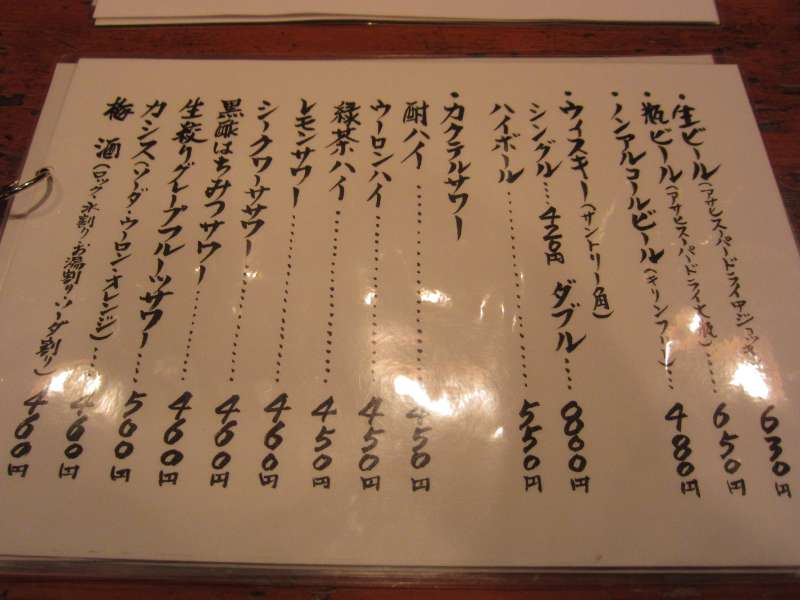 ・生ビール(アサヒスーパードライ中ジョッキ) 630円
・瓶ビール(アサヒスーパードライ大瓶)…… 650円
・ノンアルコールビール(キリンフリー)…… 480円
・ウィスキー(サントリー角)
シングル……420円 ダブル…… 800円
ハイボール…… 550円
・カクテルサワー
酎ハイ…… 450円
ウーロンハイ…… 450円
緑茶ハイ…… 450円
レモンサワー…… 450円
シークワーササワー…… 460円
黒酢はちみつサワー…… 460円
生絞りグレープフルーツサワー…… 460円
カシス(ソーダ・ウーロン・オレンジ)…… 500円
梅酒(ロック・水割り・お湯割り・ソーダ割り) 460円